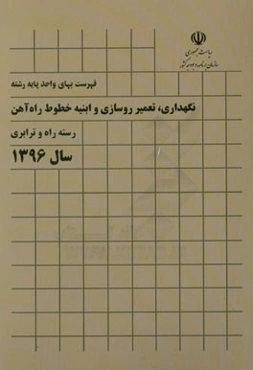 ریاست جمهوری
سازمان برنامه و بودجه کشور
فهرست بهای واحد پایه رشته
نگهداری، تعمیر روسازی و ابنیه خطوط راه‌آهن
رسته راه و ترابری
سال ۱۳۹۶